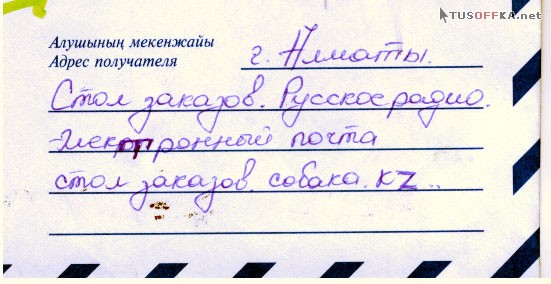 TUSOFFKA.net
Алушының мекенжайы
Адрес получателя г. Алматы.
Стол заказов. Русское радио.
Электронный почта
стол заказов. собака. KZ..